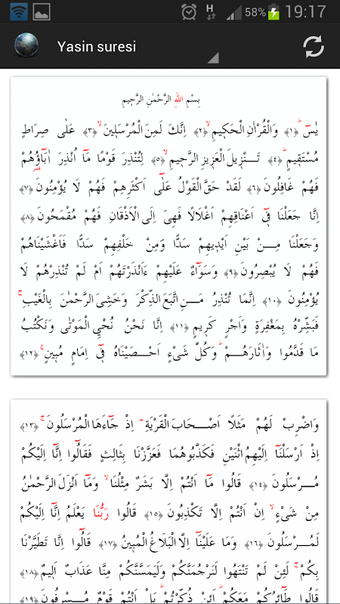 58% 19:17
Yasin suresi
بِسْمِ اللهِ الرَّحْمٰنِ الرَّحِيمِ
يٰسٓ ﴿١﴾ وَالْقُرْاٰنِ الْحَكِيمِۙ ﴿٢﴾ اِنَّكَ لَمِنَ الْمُرْسَلِينَۙ ﴿٣﴾ عَلٰى صِرَاطٍ
مُسْتَقِيمٍۜ ﴿٤﴾ تَنْزِيلَ الْعَزِيزِ الرَّحِيمِۙ ﴿٥﴾ لِتُنْذِرَ قَوْمًا مَٓا اُنْذِرَ اٰبَٓاؤُ۬هُمْ
فَهُمْ غَافِلُونَ ﴿٦﴾ لَقَدْ حَقَّ الْقَوْلُ عَلٰٓى اَكْثَرِهِمْ فَهُمْ لَا يُؤْمِنُونَ ﴿٧﴾
اِنَّا جَعَلْنَا فِٓي اَعْنَاقِهِمْ اَغْلَالًا فَهِيَ اِلَى الْاَذْقَانِ فَهُمْ مُقْمَحُونَ ﴿٨﴾
وَجَعَلْنَا مِنْ بَيْنِ اَيْدِيهِمْ سَدًّا وَمِنْ خَلْفِهِمْ سَدًّا فَاَغْشَيْنَاهُمْ
فَهُمْ لَا يُبْصِرُونَ ﴿٩﴾ وَسَوَٓاءٌ عَلَيْهِمْ ءَاَنْذَرْتَهُمْ اَمْ لَمْ تُنْذِرْهُمْ لَا
يُؤْمِنُونَ ﴿١٠﴾ اِنَّمَا تُنْذِرُ مَنِ اتَّبَعَ الذِّكْرَ وَخَشِيَ الرَّحْمٰنَ بِالْغَيْبِۚ
فَبَشِّرْهُ بِمَغْفِرَةٍ وَاَجْرٍ كَرِيمٍ ﴿١١﴾ اِنَّا نَحْنُ نُحْيِ الْمَوْتٰى وَنَكْتُبُ
مَا قَدَّمُوا وَاٰثَارَهُمْۜ وَكُلَّ شَيْءٍ اَحْصَيْنَاهُ فِٓي اِمَامٍ مُبِينٍ۟ ﴿١٢﴾
وَاضْرِبْ لَهُمْ مَثَلًا اَصْحَابَ الْقَرْيَةِۢ اِذْ جَٓاءَهَا الْمُرْسَلُونَۚ ﴿١٣﴾
اِذْ اَرْسَلْنَٓا اِلَيْهِمُ اثْنَيْنِ فَكَذَّبُوهُمَا فَعَزَّزْنَا بِثَالِثٍ فَقَالُٓوا اِنَّٓا اِلَيْكُمْ
مُرْسَلُونَ ﴿١٤﴾ قَالُوا مَٓا اَنْتُمْ اِلَّا بَشَرٌ مِثْلُنَاۙ وَمَٓا اَنْزَلَ الرَّحْمٰنُ
مِنْ شَيْءٍۙ اِنْ اَنْتُمْ اِلَّا تَكْذِبُونَ ﴿١٥﴾ قَالُوا رَبُّنَا يَعْلَمُ اِنَّٓا اِلَيْكُمْ
لَمُرْسَلُونَ ﴿١٦﴾ وَمَا عَلَيْنَٓا اِلَّا الْبَلَاغُ الْمُبِينُ ﴿١٧﴾ قَالُٓوا اِنَّا تَطَيَّرْنَا
بِكُمْۚ لَئِنْ لَمْ تَنْتَهُوا لَنَرْجُمَنَّكُمْ وَلَيَمَسَّنَّكُمْ مِنَّا عَذَابٌ اَلِيمٌ ﴿١٨﴾
قَالُوا طَٓائِرُكُمْ مَعَكُمْۜ اَئِنْ ذُكِّرْتُمْۜ بَلْ اَنْتُمْ قَوْمٌ مُسْرِفُونَ ﴿١٩﴾